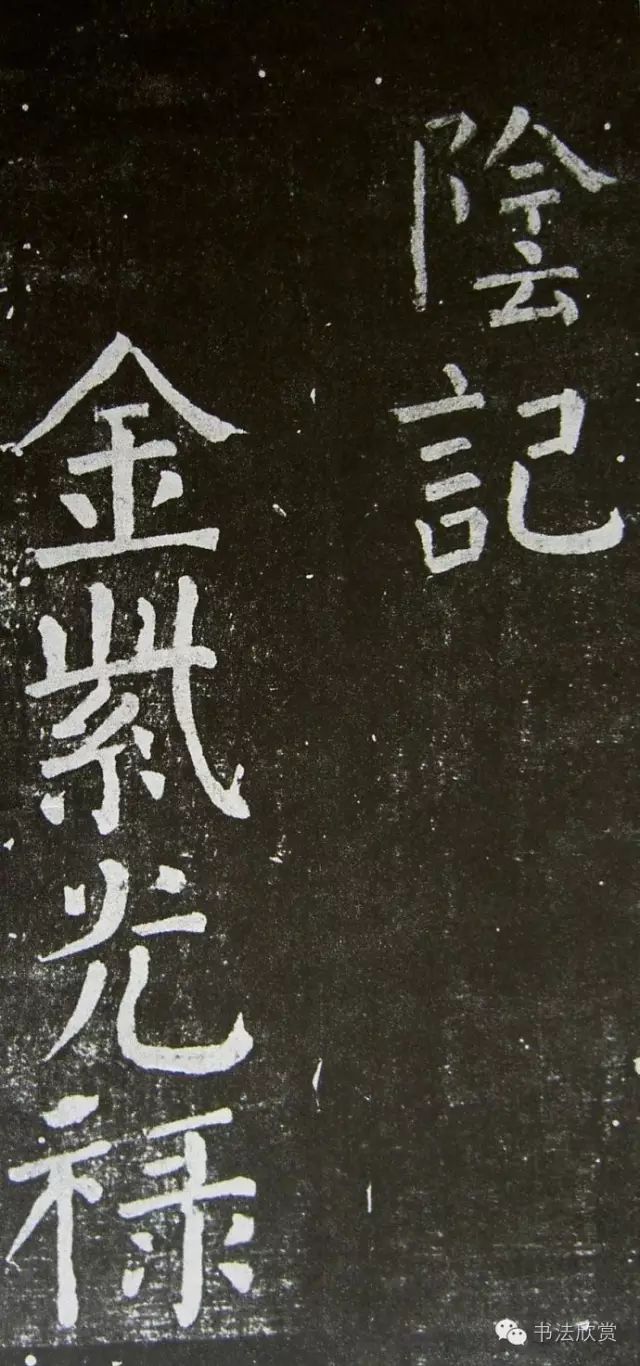 陰記
金紫光禄
书法欣赏